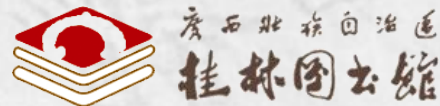 广西壮族自治区
桂林图书馆